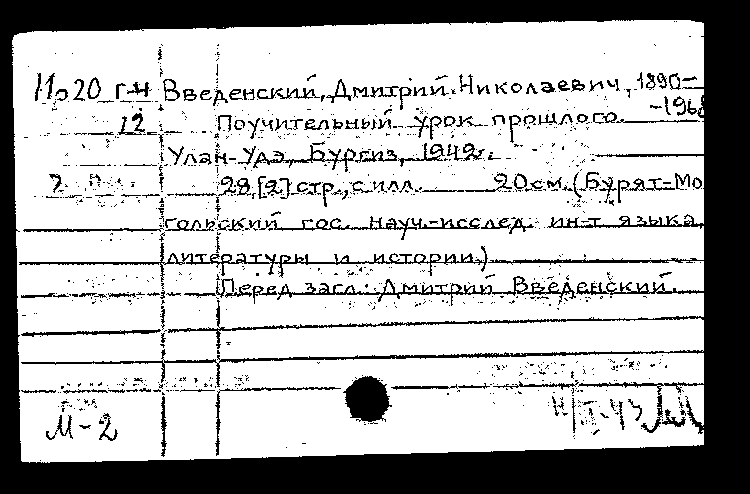 Введенский, Дмитрий Николаевич, 1890-
12 Поучительный урок прошлого. -1968
Улан-Удэ, Бургиз, 1942г.
28,[2] стр., с илл. 20см. (Бурят-Мо
гольский гос. науч.-исслед. ин-т языка,
литературы и истории.)
Перед загл.: Дмитрий Введенский.
М-2